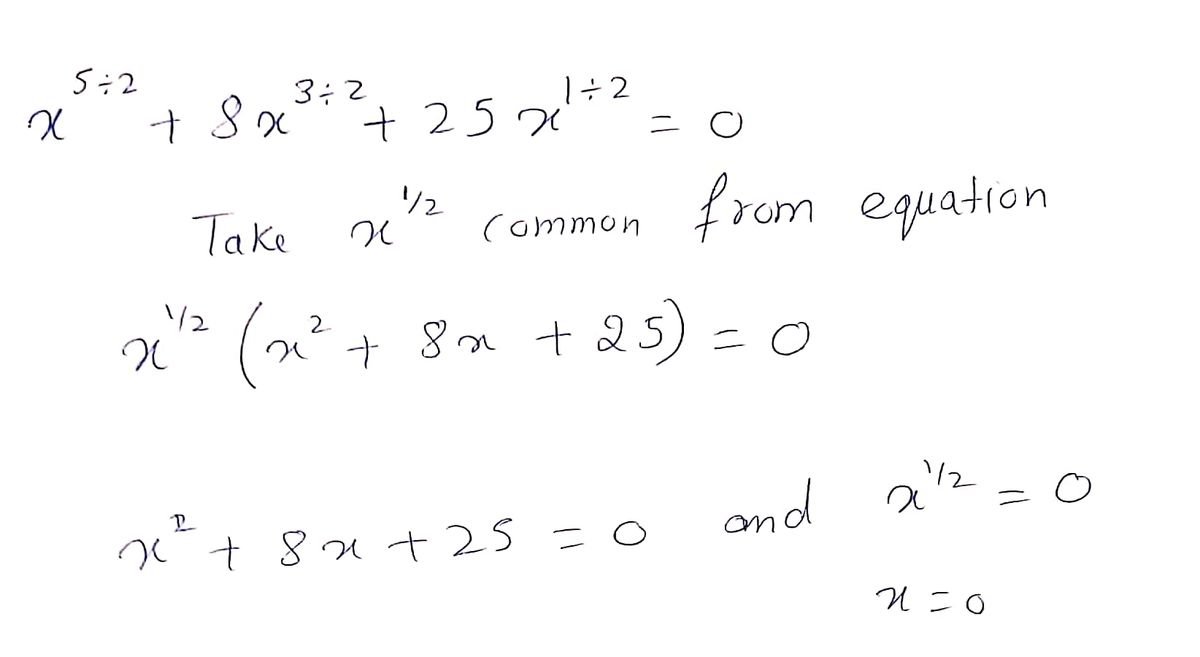 x^{5÷2} + 8x^{3÷2} + 25x^{1÷2} = 0
Take x^{1/2} common from equation
x^{1/2} (x^2 + 8x + 25) = 0
x^2 + 8x + 25 = 0 and x^{1/2} = 0
x = 0